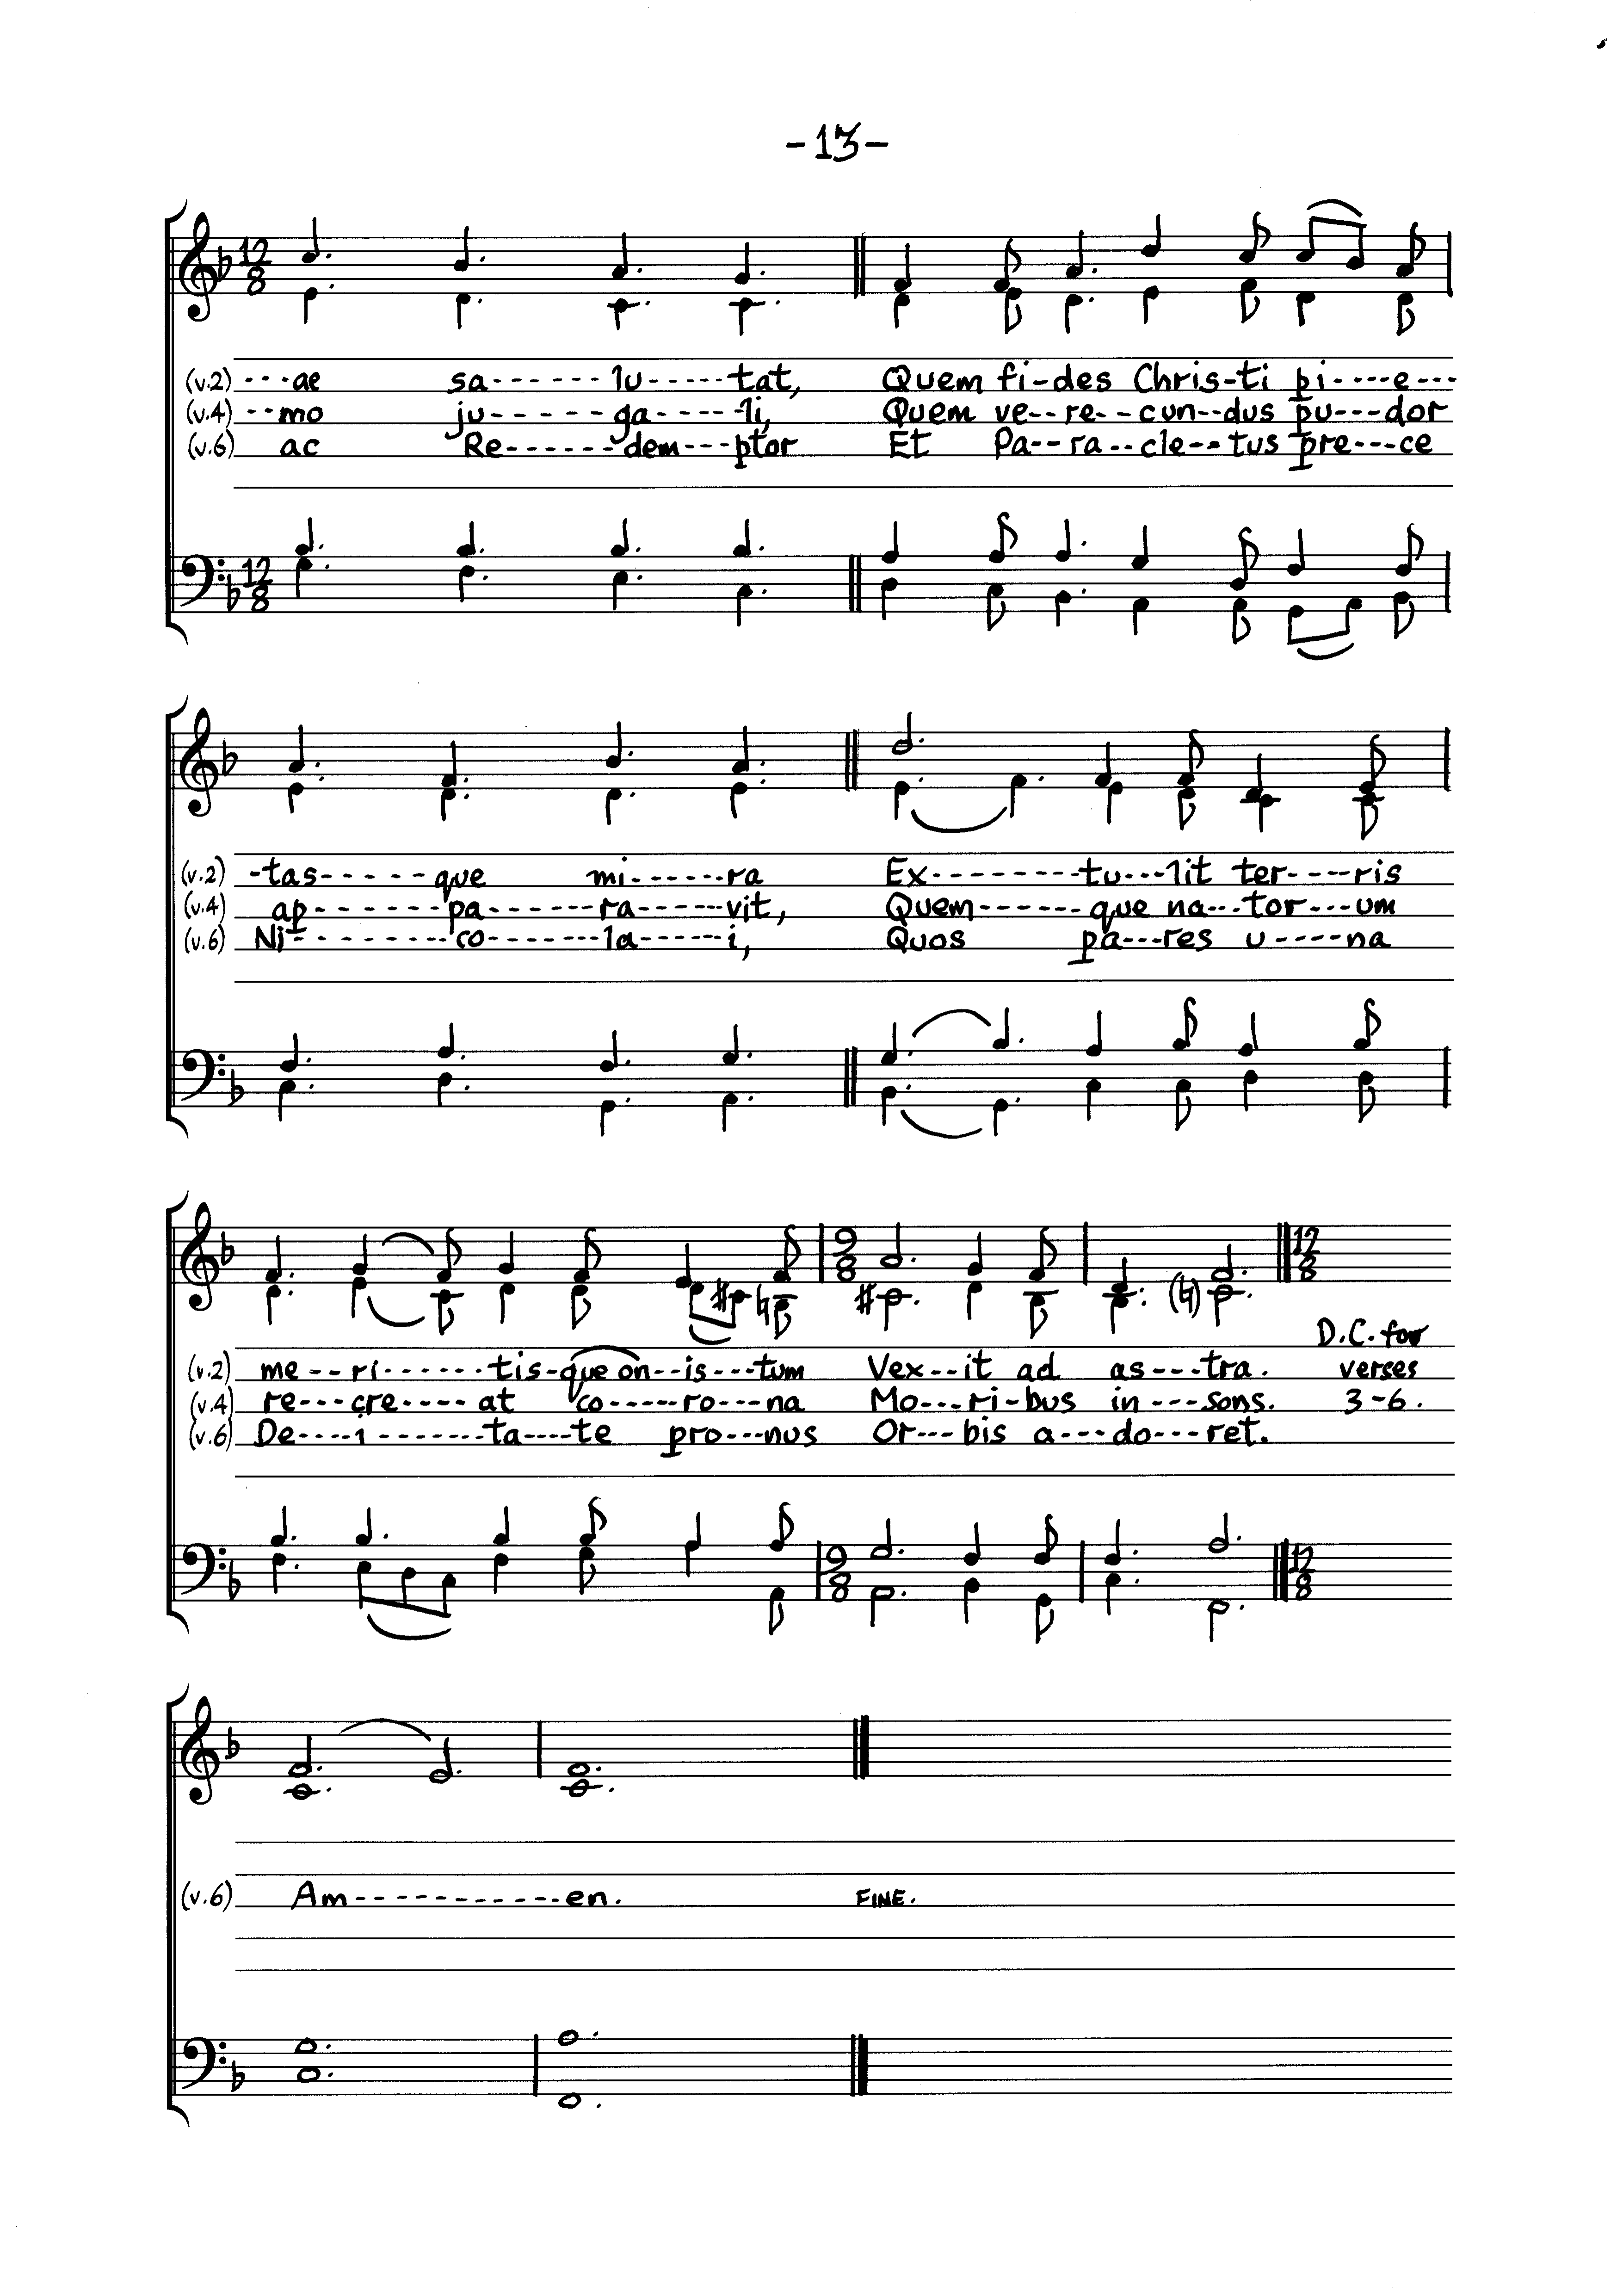 -13-
12 8
(v.2) ---ae sa------lu-----tat, Quem fi-des Chris-ti pi----e---
(v.4) --mo ju------ga-----li, Quem ve--re--cun--dus pu---dor
(v.6) ac Re------dem---ptor Et Pa--ra--cle--tus pre---ce
12 8
(v.2) -tas-----que mi------ra Ex--------tu---lit ter----ris
(v.4) ap-------pa------ra-----vit, Quem------que na---tor---um
(v.6) Ni--------co-------la-----i, Quos pa---res u----na
9 8 12 8
D.C. for
(v.2) me--ri------tis-que on--is---tum Vex--it ad as---tra. verses
(v.4) re---cre----at co-----ro---na Mo---ri-bus in---sons. 3-6.
(v.6) De----i-------ta----te pro---nus Or---bis a---do---ret.
9 8 12 8
(v.6) Am------------en. FINE.